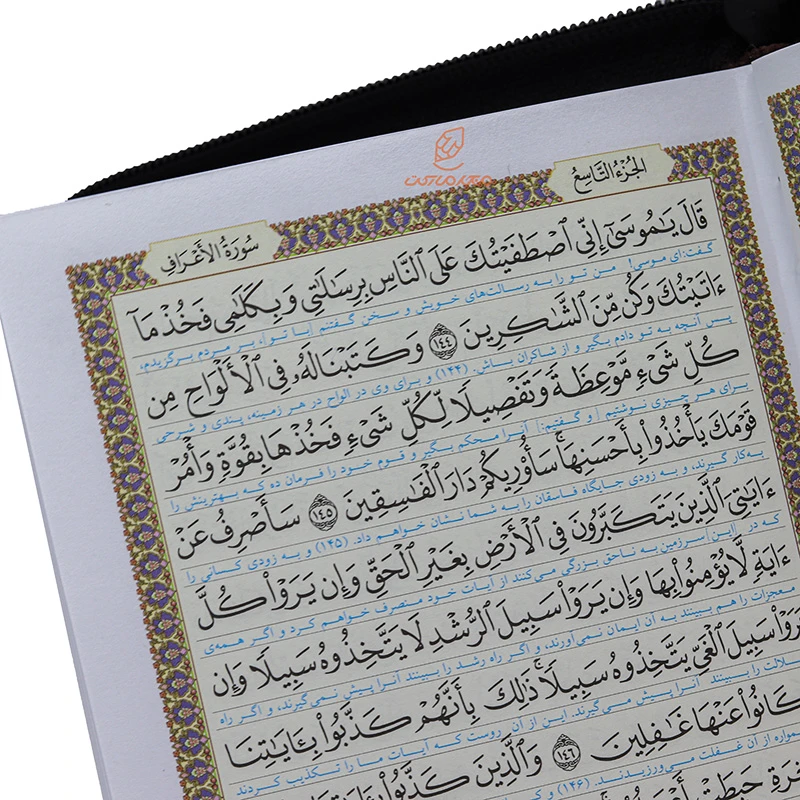 الجُزْءُ التَّاسِعُ
سُورَةُ الأَعْرَافِ
قَالَ يَٰمُوسَىٰٓ إِنِّي ٱصْطَفَيْتُكَ عَلَى ٱلنَّاسِ بِرِسَٰلَٰتِي وَبِكَلَٰمِي فَخُذْ مَآ
گفت: ای موسی! من تو را به رسالت‌های خویش و سخن گفتنم [با تو]، بر مردم برگزیدم،
ءَاتَيْتُكَ وَكُن مِّنَ ٱلشَّٰكِرِينَ ﴿١٤٤﴾ وَكَتَبْنَا لَهُۥ فِي ٱلْأَلْوَاحِ مِن
پس آنچه به تو دادم بگیر و از شاکران باش. (۱۴۴) و برای وی در الواح در هر زمینه، پندی و شرحی
كُلِّ شَيْءٍ مَّوْعِظَةً وَتَفْصِيلًا لِّكُلِّ شَيْءٍ فَخُذْهَا بِقُوَّةٍ وَأْمُرْ
برای هر چیزی نوشتیم [و گفتیم:] آنرا محکم بگیر و قوم خود را فرمان ده که بهترینش را
قَوْمَكَ يَأْخُذُوا۟ بِأَحْسَنِهَا ۚ سَأُو۟رِيكُمْ دَارَ ٱلْفَٰسِقِينَ ﴿١٤٥﴾ سَأَصْرِفُ عَنْ
به‌کار گیرند، و به زودی جایگاه فاسقان را به شما نشان خواهم داد. (۱۴۵) و به زودی کسانی را
ءَايَٰتِيَ ٱلَّذِينَ يَتَكَبَّرُونَ فِي ٱلْأَرْضِ بِغَيْرِ ٱلْحَقِّ وَإِن يَرَوْا۟ كُلَّ
که در [این] سرزمین به ناحق بزرگی می‌کنند از آیات خود منصرف خواهم کرد و اگر همه‌ی
ءَايَةٍ لَّا يُؤْمِنُوا۟ بِهَا وَإِن يَرَوْا۟ سَبِيلَ ٱلرُّشْدِ لَا يَتَّخِذُوهُ سَبِيلًا وَإِن
معجزات را هم ببینند به آن ایمان نمی‌آورند، و اگر راه رشد را ببینند آنرا پیش نمی‌گیرند، و اگر راه
يَرَوْا۟ سَبِيلَ ٱلْغَيِّ يَتَّخِذُوهُ سَبِيلًا ۚ ذَٰلِكَ بِأَنَّهُمْ كَذَّبُوا۟ بِـَٔايَٰتِنَا
را ببینند آنرا پیش می‌گیرند. این از آن روست که آیات ما را تکذیب کردند
كَانُوا۟ عَنْهَا غَٰفِلِينَ ﴿١٤٦﴾ وَٱلَّذِينَ كَذَّبُوا۟
از آن غفلت می‌ورزیدند. (۱۴۶) و
حَبِطَتْ